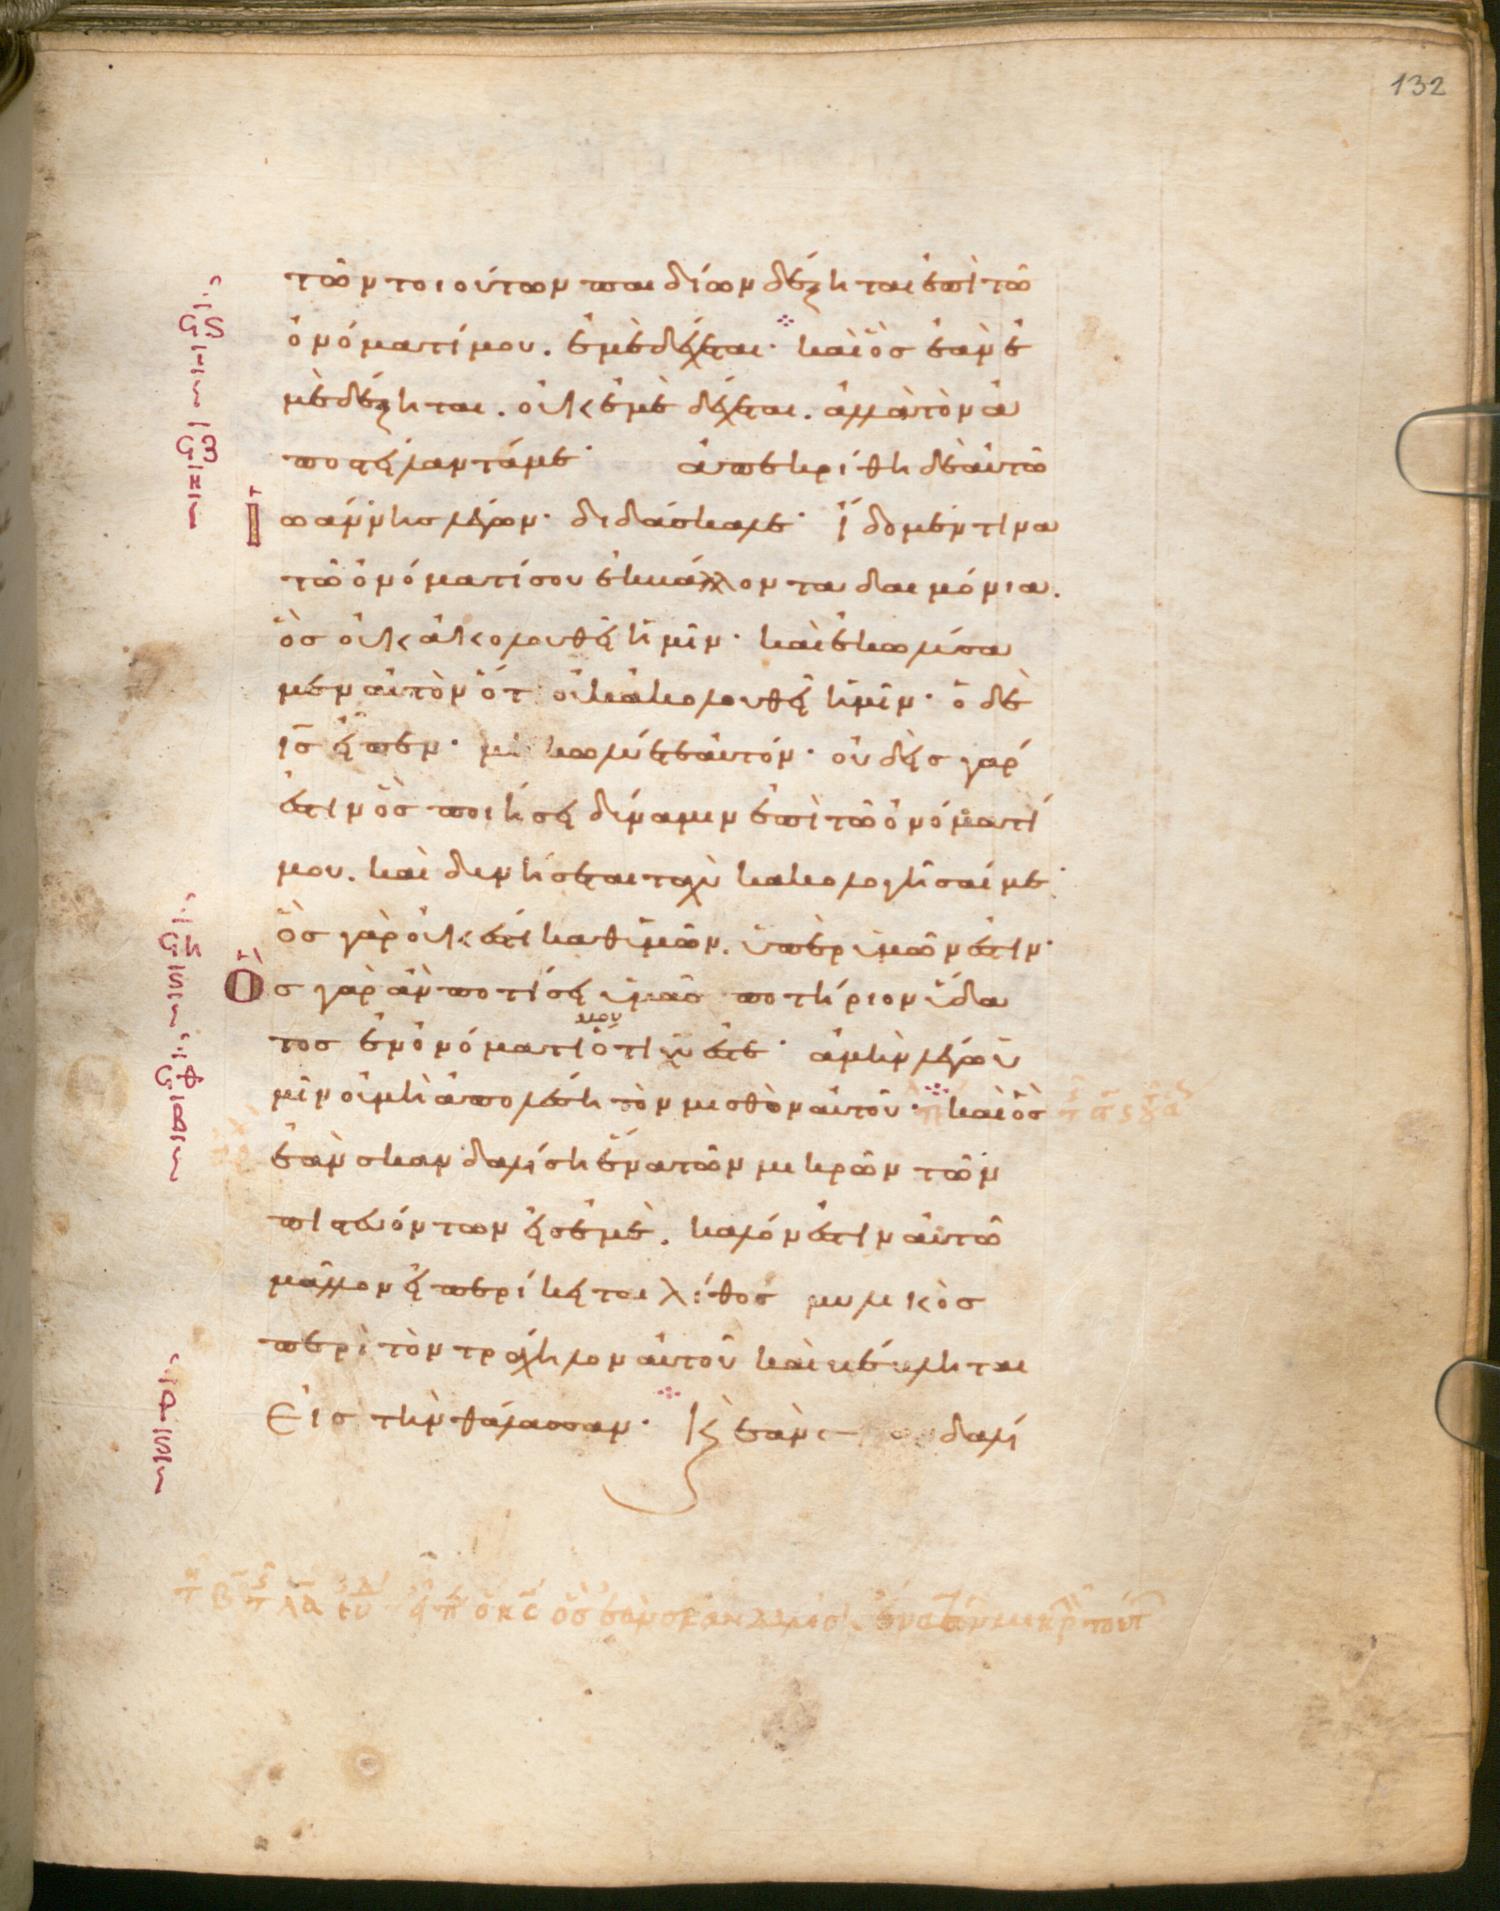 132
τῶν τοιούτων παιδίων δέξηται ἐπὶ τῶ
ὀνόματί μου. ἐμὲ δέχεται· καὶ ὃσ ἐὰν ἐ
μὲ δέξηται. οὐκ ἐμὲ δέχεται. ἀλλὰ τὸν ἀ
ποστείλαντά με· ἀπεκρίθη δὲ αὐτῶ
ϊωάννησ λέγων· διδάσκαλε· εἴδομέν τινα
τῶ ὀνόματί σου ἐκβάλλοντα δαιμόνια.
ὃσ οὐκ ἀκολουθεῖ ἡμῖν· καὶ ἐκωλύσα
μεν αὐτὸν ὅτ οὐκ ἀκολουθεῖ ἡμῖν· ὁ δὲ
ισ εἶπεν· μὴ κωλύετε αὐτόν· οὐδεὶσ γάρ
ἐστιν ὃσ ποιήσει δύναμιν ἐπὶ τῶ ὀνόματί
μου. καὶ δυνήσεται ταχὺ κακολογῆσαί με·
ὃσ γὰρ οὐκ ἔστι καθ ὑμῶν. ὑπὲρ ὑμῶν ἐστιν·
Ὃσ γὰρ ἂν ποτίσει ὑμᾶσ ποτήριον ὕδα
τοσ ἐν ὀνόματί μου ὅτι χυ ἐστε· ἀμὴν λέγω ὑ
μῖν οὐ μὴ ἀπολέση τὸν μισθὸν αὐτοῦ· καὶ ὃσ
ἐὰν σκανδαλίση ἕνα τῶν μικρῶν τῶν
πιστευόντων εἰσ ἐμὲ. καλόν ἐστιν αὐτῶ
μᾶλλον εἰ περίκειται λίθοσ μυλικὸσ
περὶ τὸν τράχηλον αὐτοῦ καὶ βέβληται
Εἰσ τὴν θάλασσαν· κ ἐὰν σ δαλί